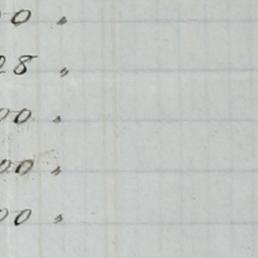 00 "
28 "
00 "
00 "
00 "